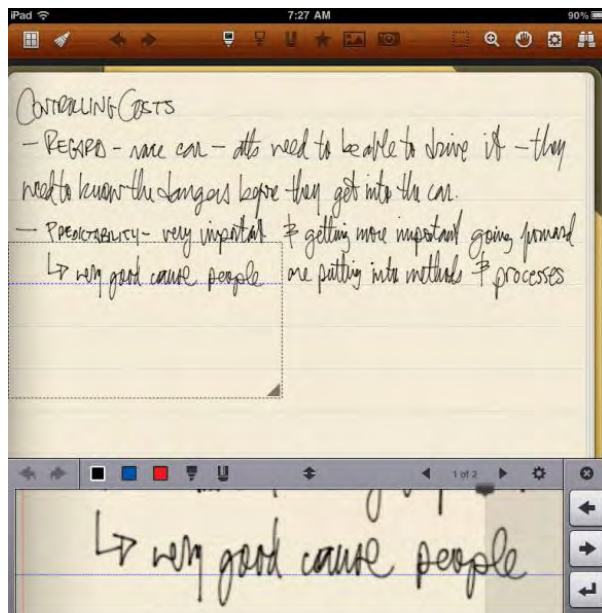 iPad 7:27 AM 90%
CONTROLLING COSTS
- REGARD - race car - atts need to be able to drive it - they
need to know the dangers before they get into the car.
- PREDICTABILITY - very important & getting more important going forward
↳ very good cause people are putting into methods & processes
1 of 2
↳ very good cause people